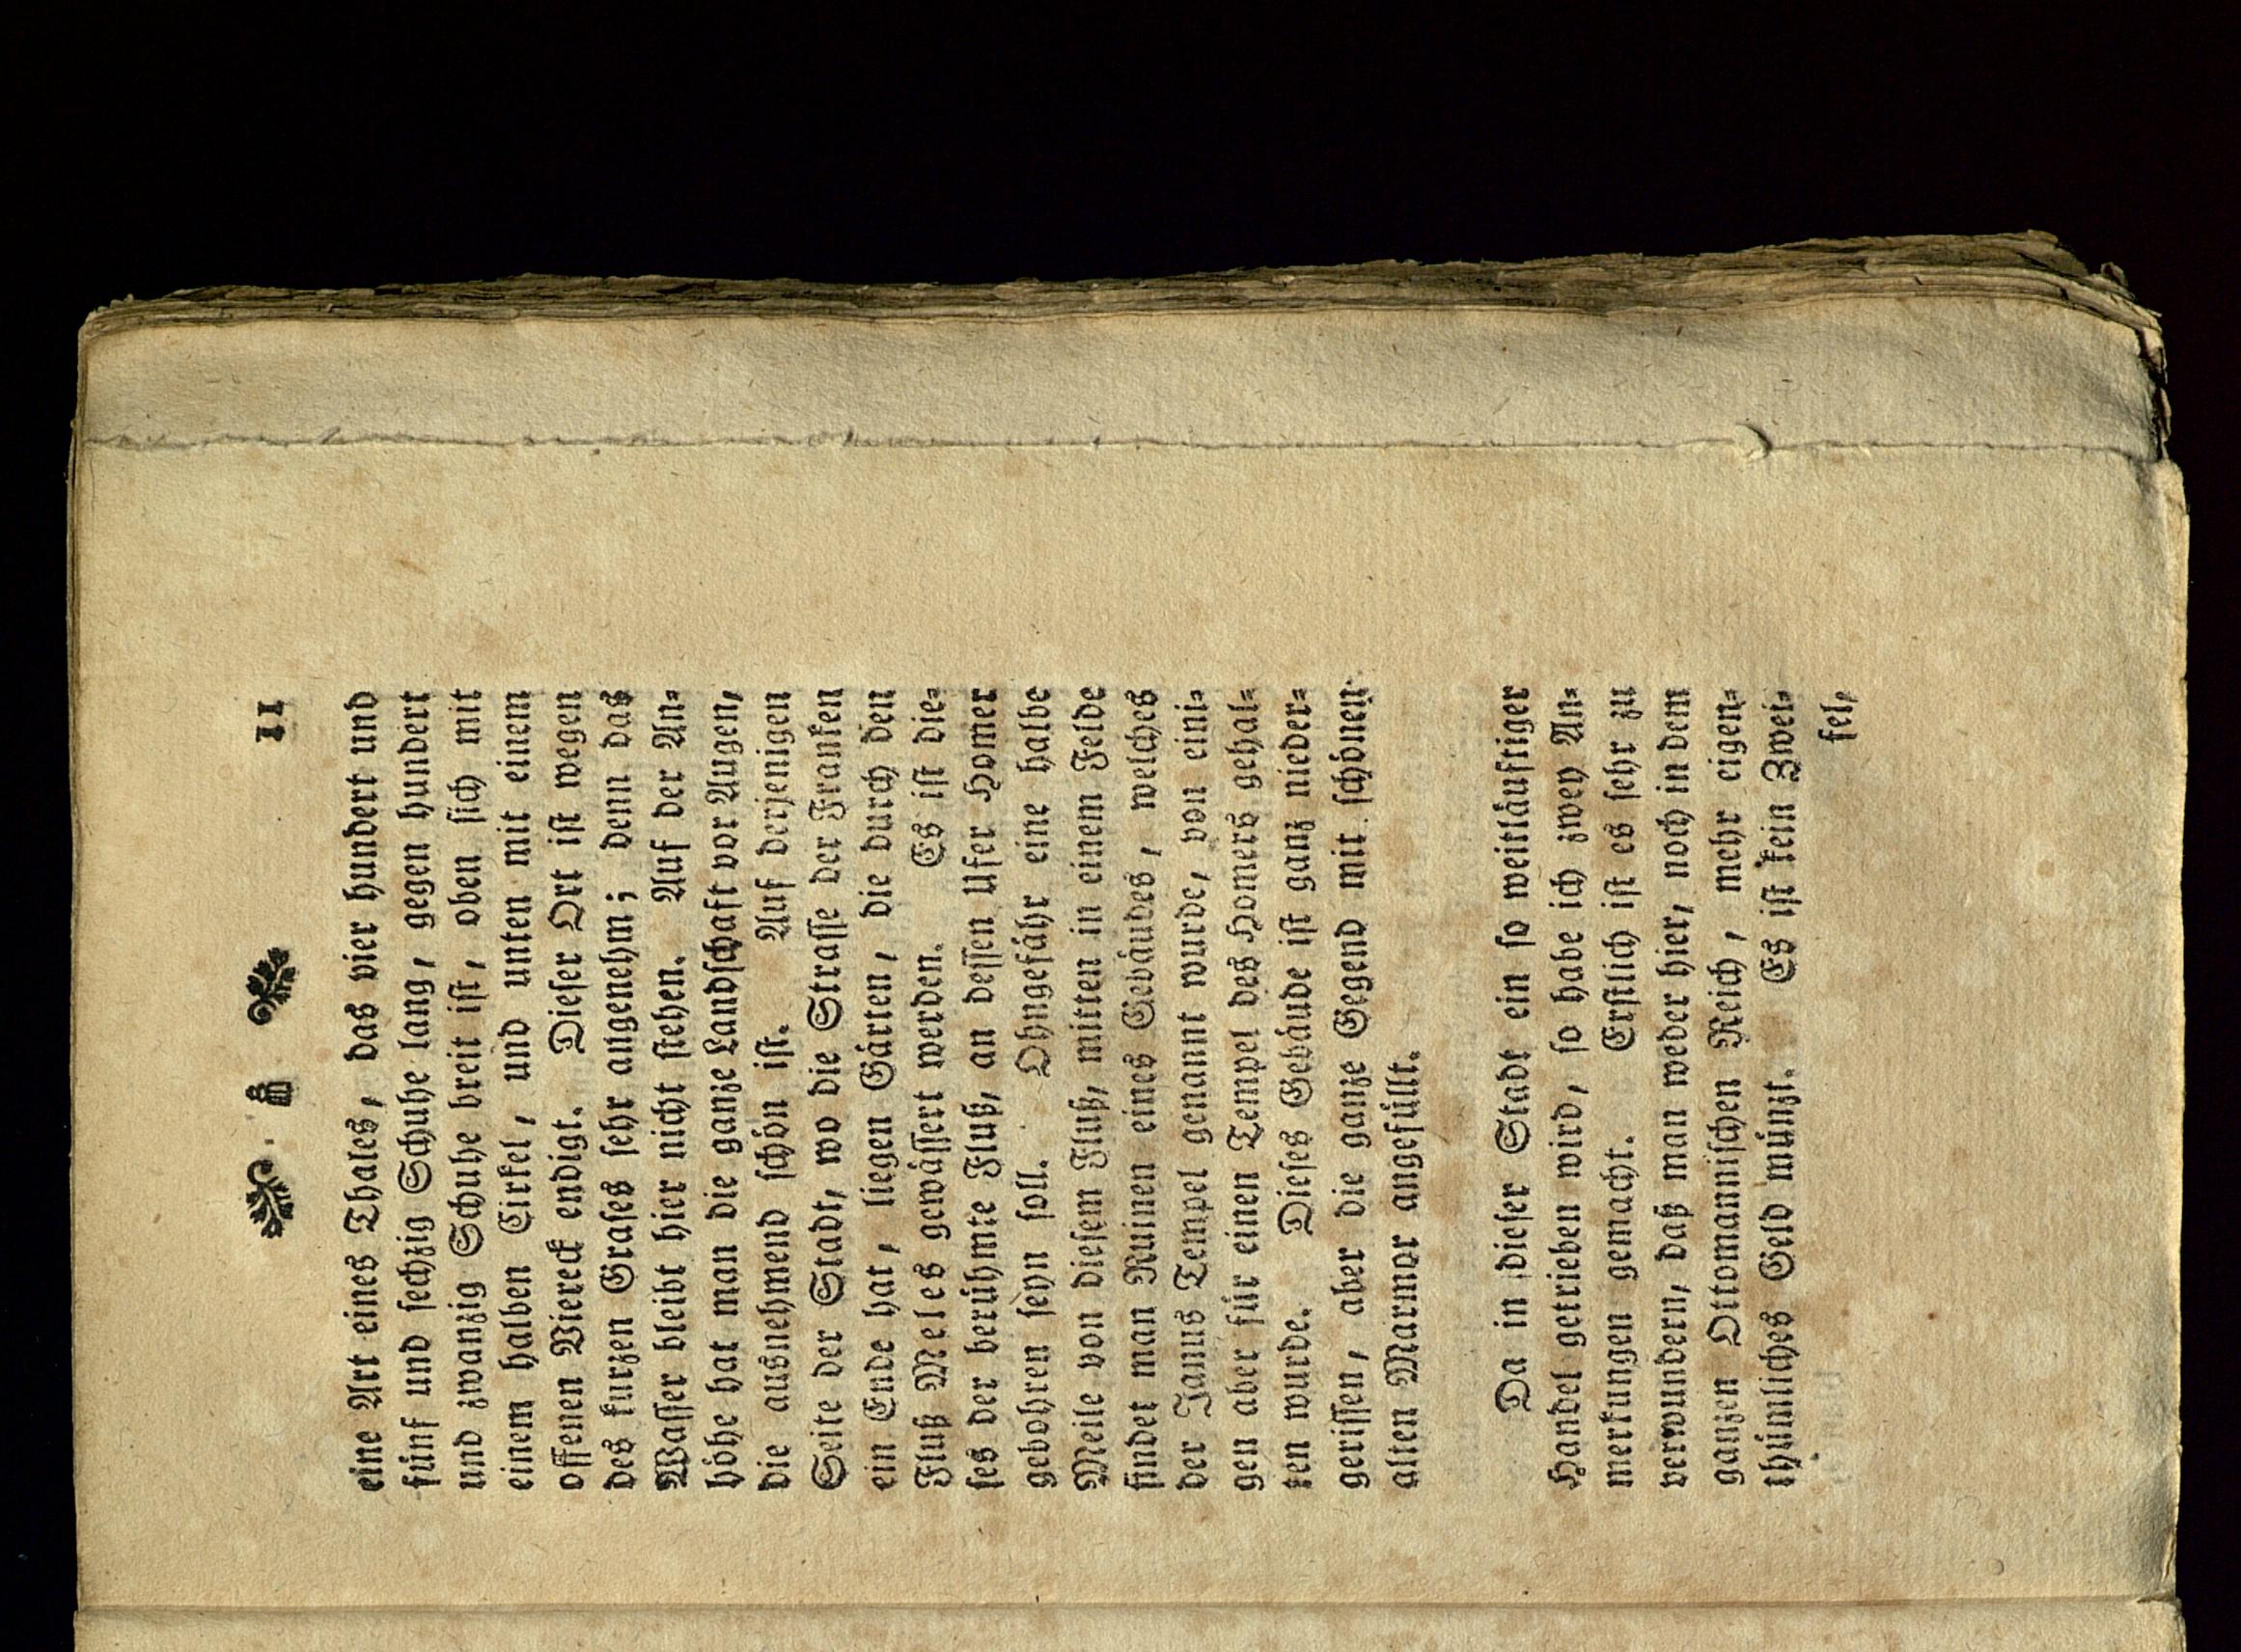 11
eine Art eines Thales, das vier hundert und
fünf und sechzig Schuhe lang, gegen hundert
und zwanzig Schuhe breit ist, oben sich mit
einem halben Cirkel, und unten mit einem
offenen Viereck endigt. Dieser Ort ist wegen
des kurzen Grases sehr angenehm; denn das
Wasser bleibt hier nicht stehen. Auf der An-
höhe hat man die ganze Landschaft vor Augen,
die ausnehmend schön ist. Auf derjenigen
Seite der Stadt, wo die Strasse der Franken
ein Ende hat, liegen Gärten, die durch den
Fluß Meles gewässert werden. Es ist die-
ses der berühmte Fluß, an dessen Ufer Homer
gebohren seyn soll. Ohngefähr eine halbe
Meile von diesem Fluß, mitten in einem Felde
findet man Ruinen eines Gebäudes, welches
der Janus Tempel genannt wurde, von eini-
gen aber für einen Tempel des Homers gehal-
ten wurde. Dieses Gebäude ist ganz nieder-
gerissen, aber die ganze Gegend mit schönen
alten Marmor angefüllt.
Da in dieser Stadt ein so weitläuftiger
Handel getrieben wird, so habe ich zwey An-
merkungen gemacht. Erstlich ist es sehr zu
verwundern, daß man weder hier, noch in dem
ganzen Ottomannischen Reich, mehr eigen-
thümliches Geld münzt. Es ist kein Zwei-
fel,